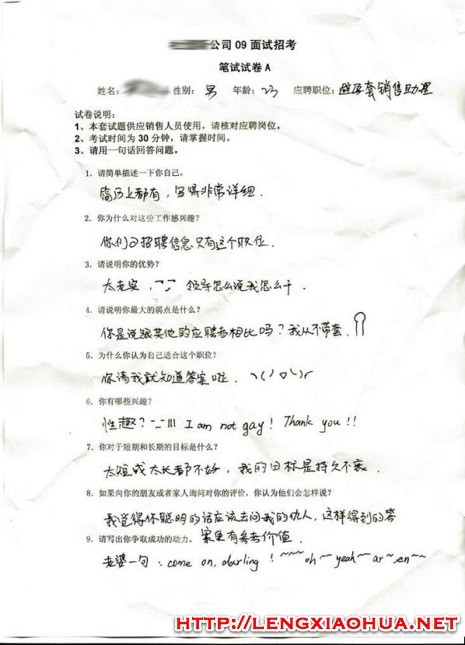 公司 09 面试招考
笔试试卷 A
姓名： 性别：男 年龄：23 应聘职位：避孕套销售助理
试卷说明：
1、本套试题供应销售人员使用，请核对应聘岗位。
2、考试时间为 30 分钟，请掌握时间。
3、请用一句话回答问题。
1．请简单描述一下你自己。
简历上都有，写得非常详细．
2．你为什么对这份工作感兴趣？
你们的招聘信息只有这个职位．
3．请说明你的优势？
太老实， 领导怎么说我怎么干．
4．请说明你最大的弱点是什么？
你是说跟其他的应聘者相比吗？我从不带套．
5．为什么你认为自己适合这个职位？
你请我就知道答案啦．ヽ(´ο`)r
6．你有哪些兴趣？
性趣？-_-||| I am not gay! Thank you!!
7．你对于短期和长期的目标是什么？
太短或太长都不好，我的目标是持久不衰．
8．如果向你的朋友或者家人询问对你的评价，你认为他们会怎样说？
我觉得你聪明的话应该去问我的仇人，这样得到的答
案更有参考价值．
9．请写出你争取成功的动力。
老婆一句：come on, darling！~~~oh~yeah~ar~en~~
HTTP://LENGXIAOHUA.NET